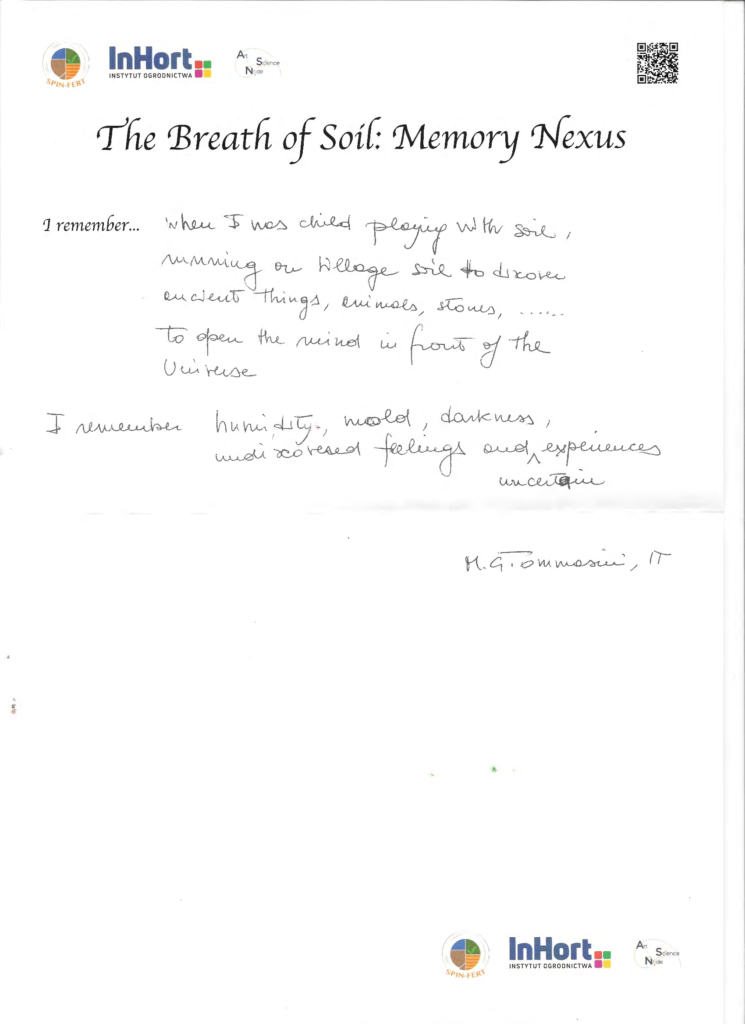 SPIN-FERT
InHort
INSTYTUT OGRODNICTWA
Art
Science
Node
The Breath of Soil: Memory Nexus
I remember... when I was child playing with soil,
running on village soil to discover
ancient things, animals, stones, ......
to open the mind in front of the
Universe
I remember humidity, mold, darkness,
undiscovered feelings and experiences
uncertain
M. G. Tommasini, IT
SPIN-FERT
InHort
INSTYTUT OGRODNICTWA
Art
Science
Node